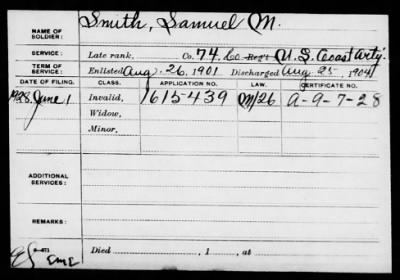 NAME OF SOLDIER: Smith, Samuel M.
SERVICE: Late rank, Co. 74, Co Reg't U.S. Coast Arty.
TERM OF SERVICE: Enlisted Aug. 26, 1901 Discharged Aug 25, 1904
DATE OF FILING. CLASS. APPLICATION NO. LAW. CERTIFICATE NO.
1928, June 1 Invalid, 1615439 M/26 A-9-7-28
Widow,
Minor,
ADDITIONAL SERVICES:
REMARKS:
Died , 1 , at